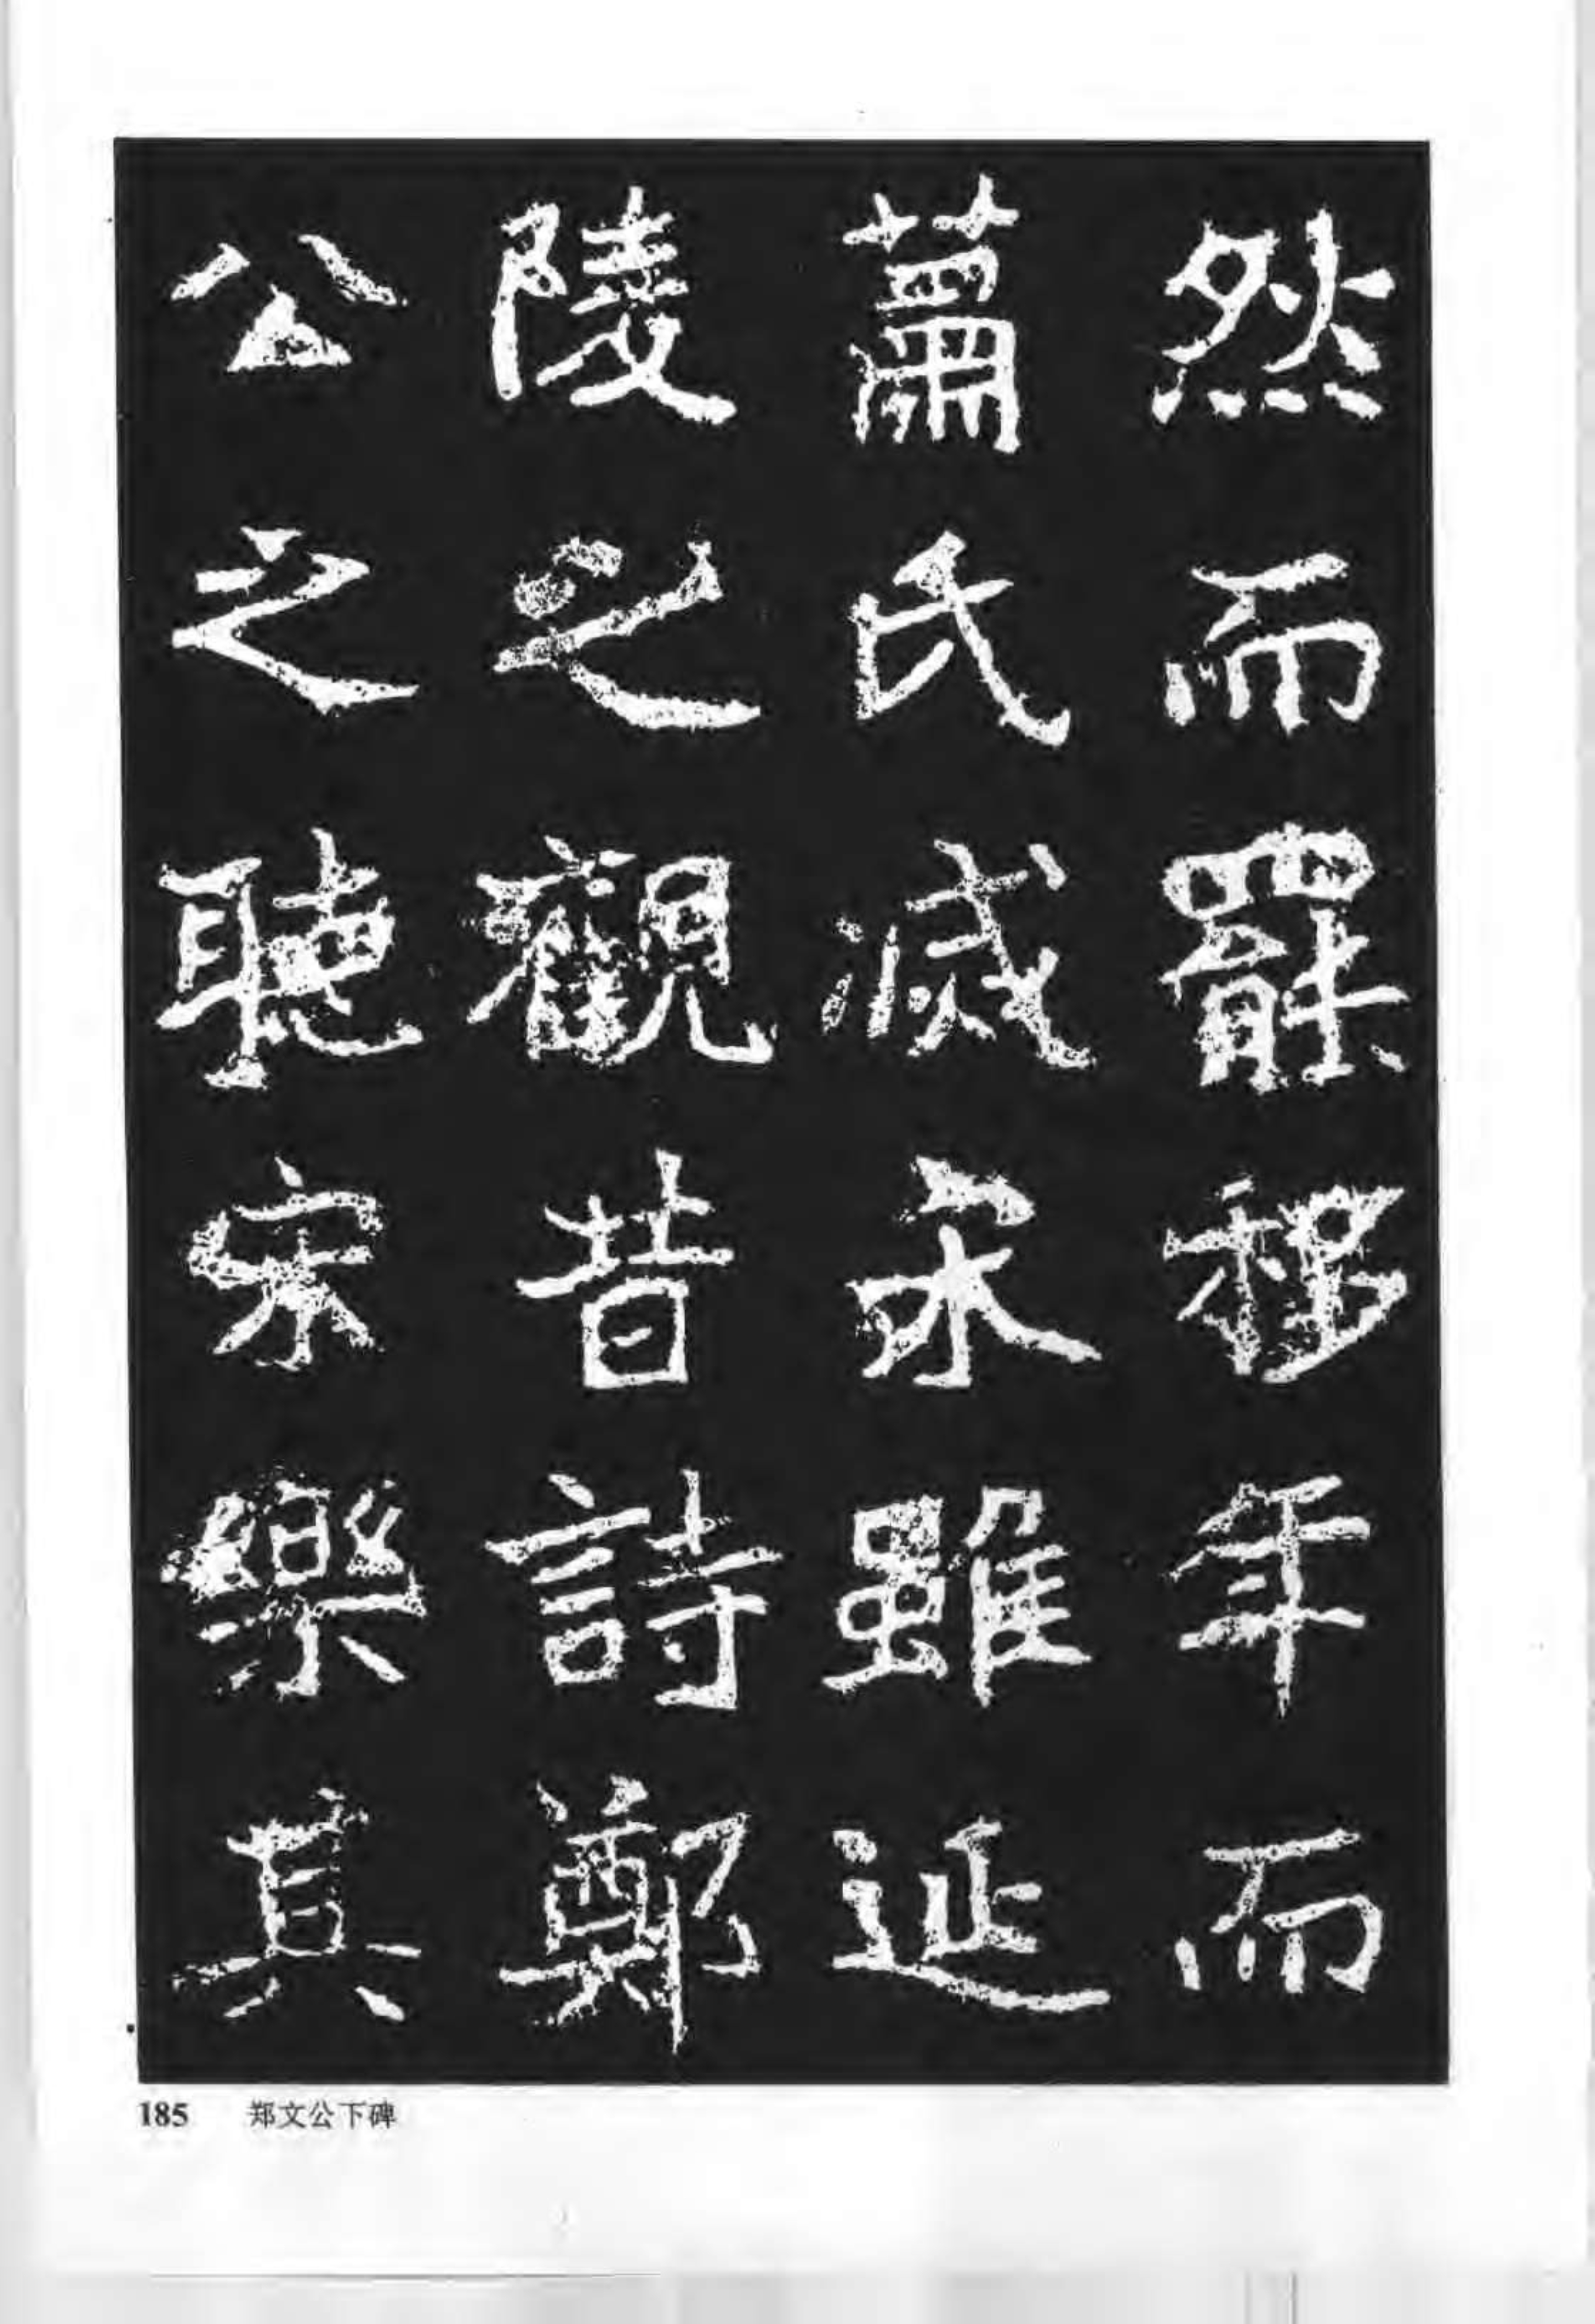 然而罷移年而
蕭氏滅宋雖延
陵之觀昔詩鄭
公之聽宋樂其
185 郑文公下碑